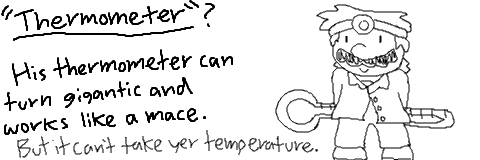 "Thermometer"?
His thermometer can
turn gigantic and
works like a mace.
But it can't take yer temperature.